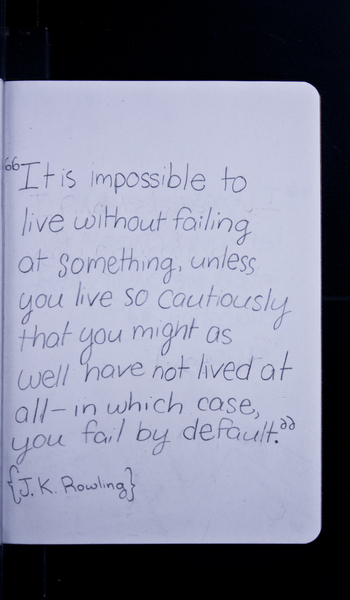 “It is impossible to
live without failing
at something, unless
you live so cautiously
that you might as
well have not lived at
all—in which case,
you fail by default.”
{J. K. Rowling}